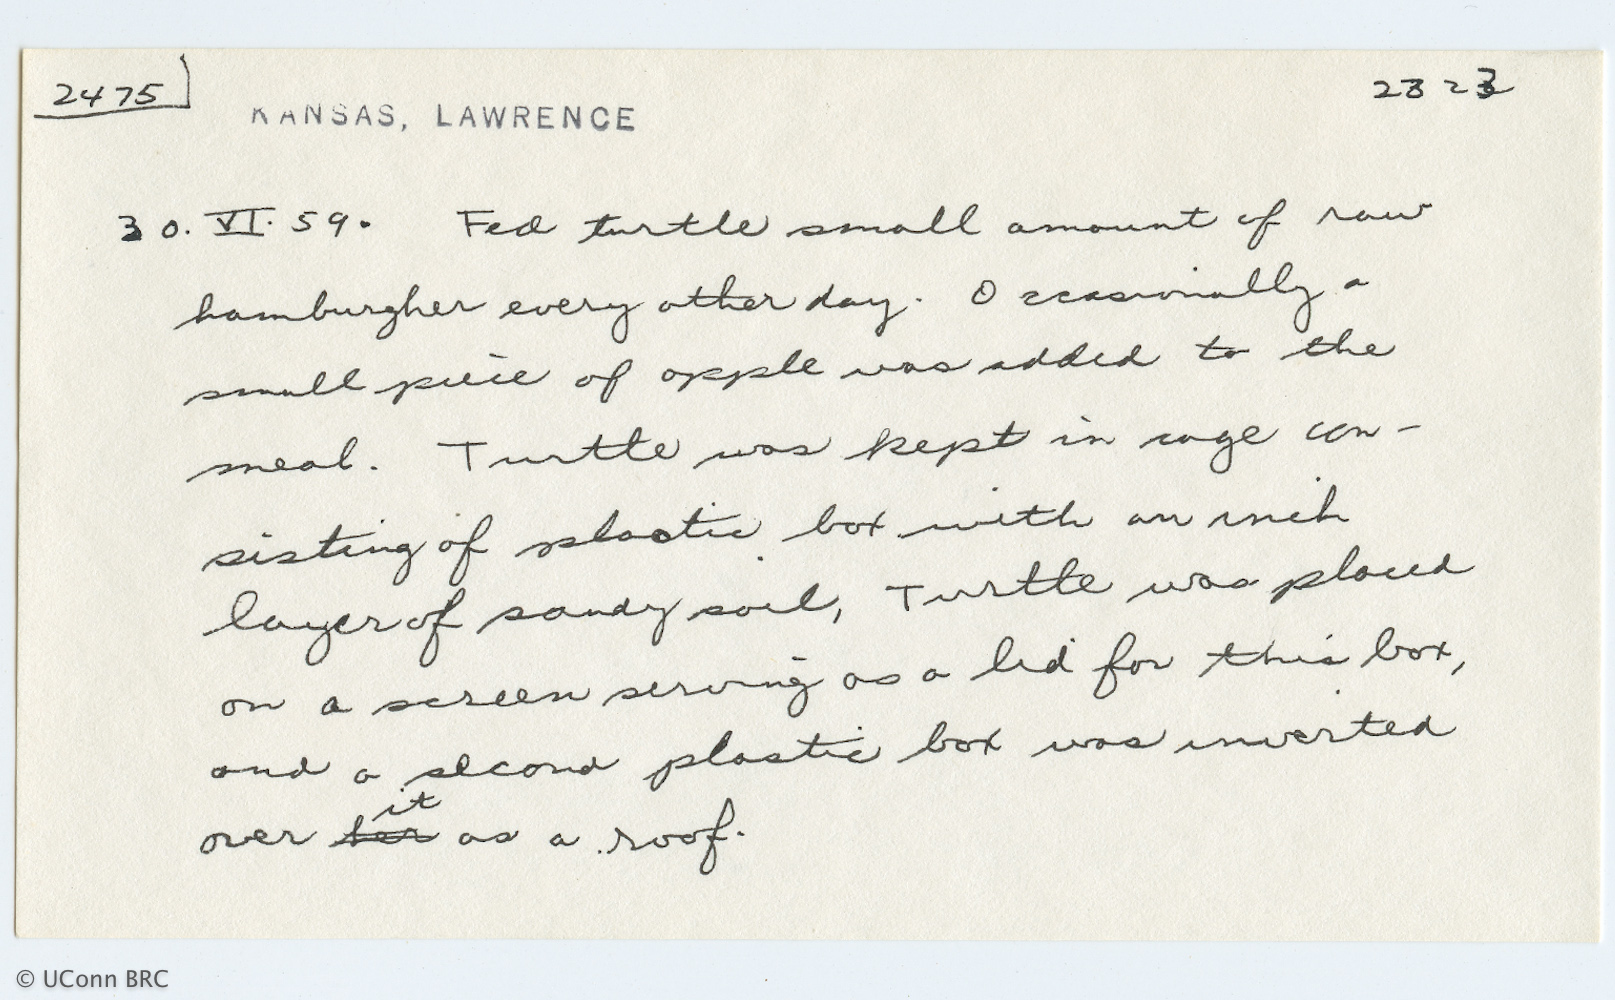 2475
2323
KANSAS, LAWRENCE
30. VI. 59. Fed turtle small amount of raw
hamburgher every other day. Occasionally a
small piece of apple was added to the
meal. Turtle was kept in cage con-
sisting of plastic box with an inch
layer of sandy soil, Turtle was placed
on a screen serving as a lid for this box,
and a second plastic box was inverted
it
over her as a roof.
© UConn BRC